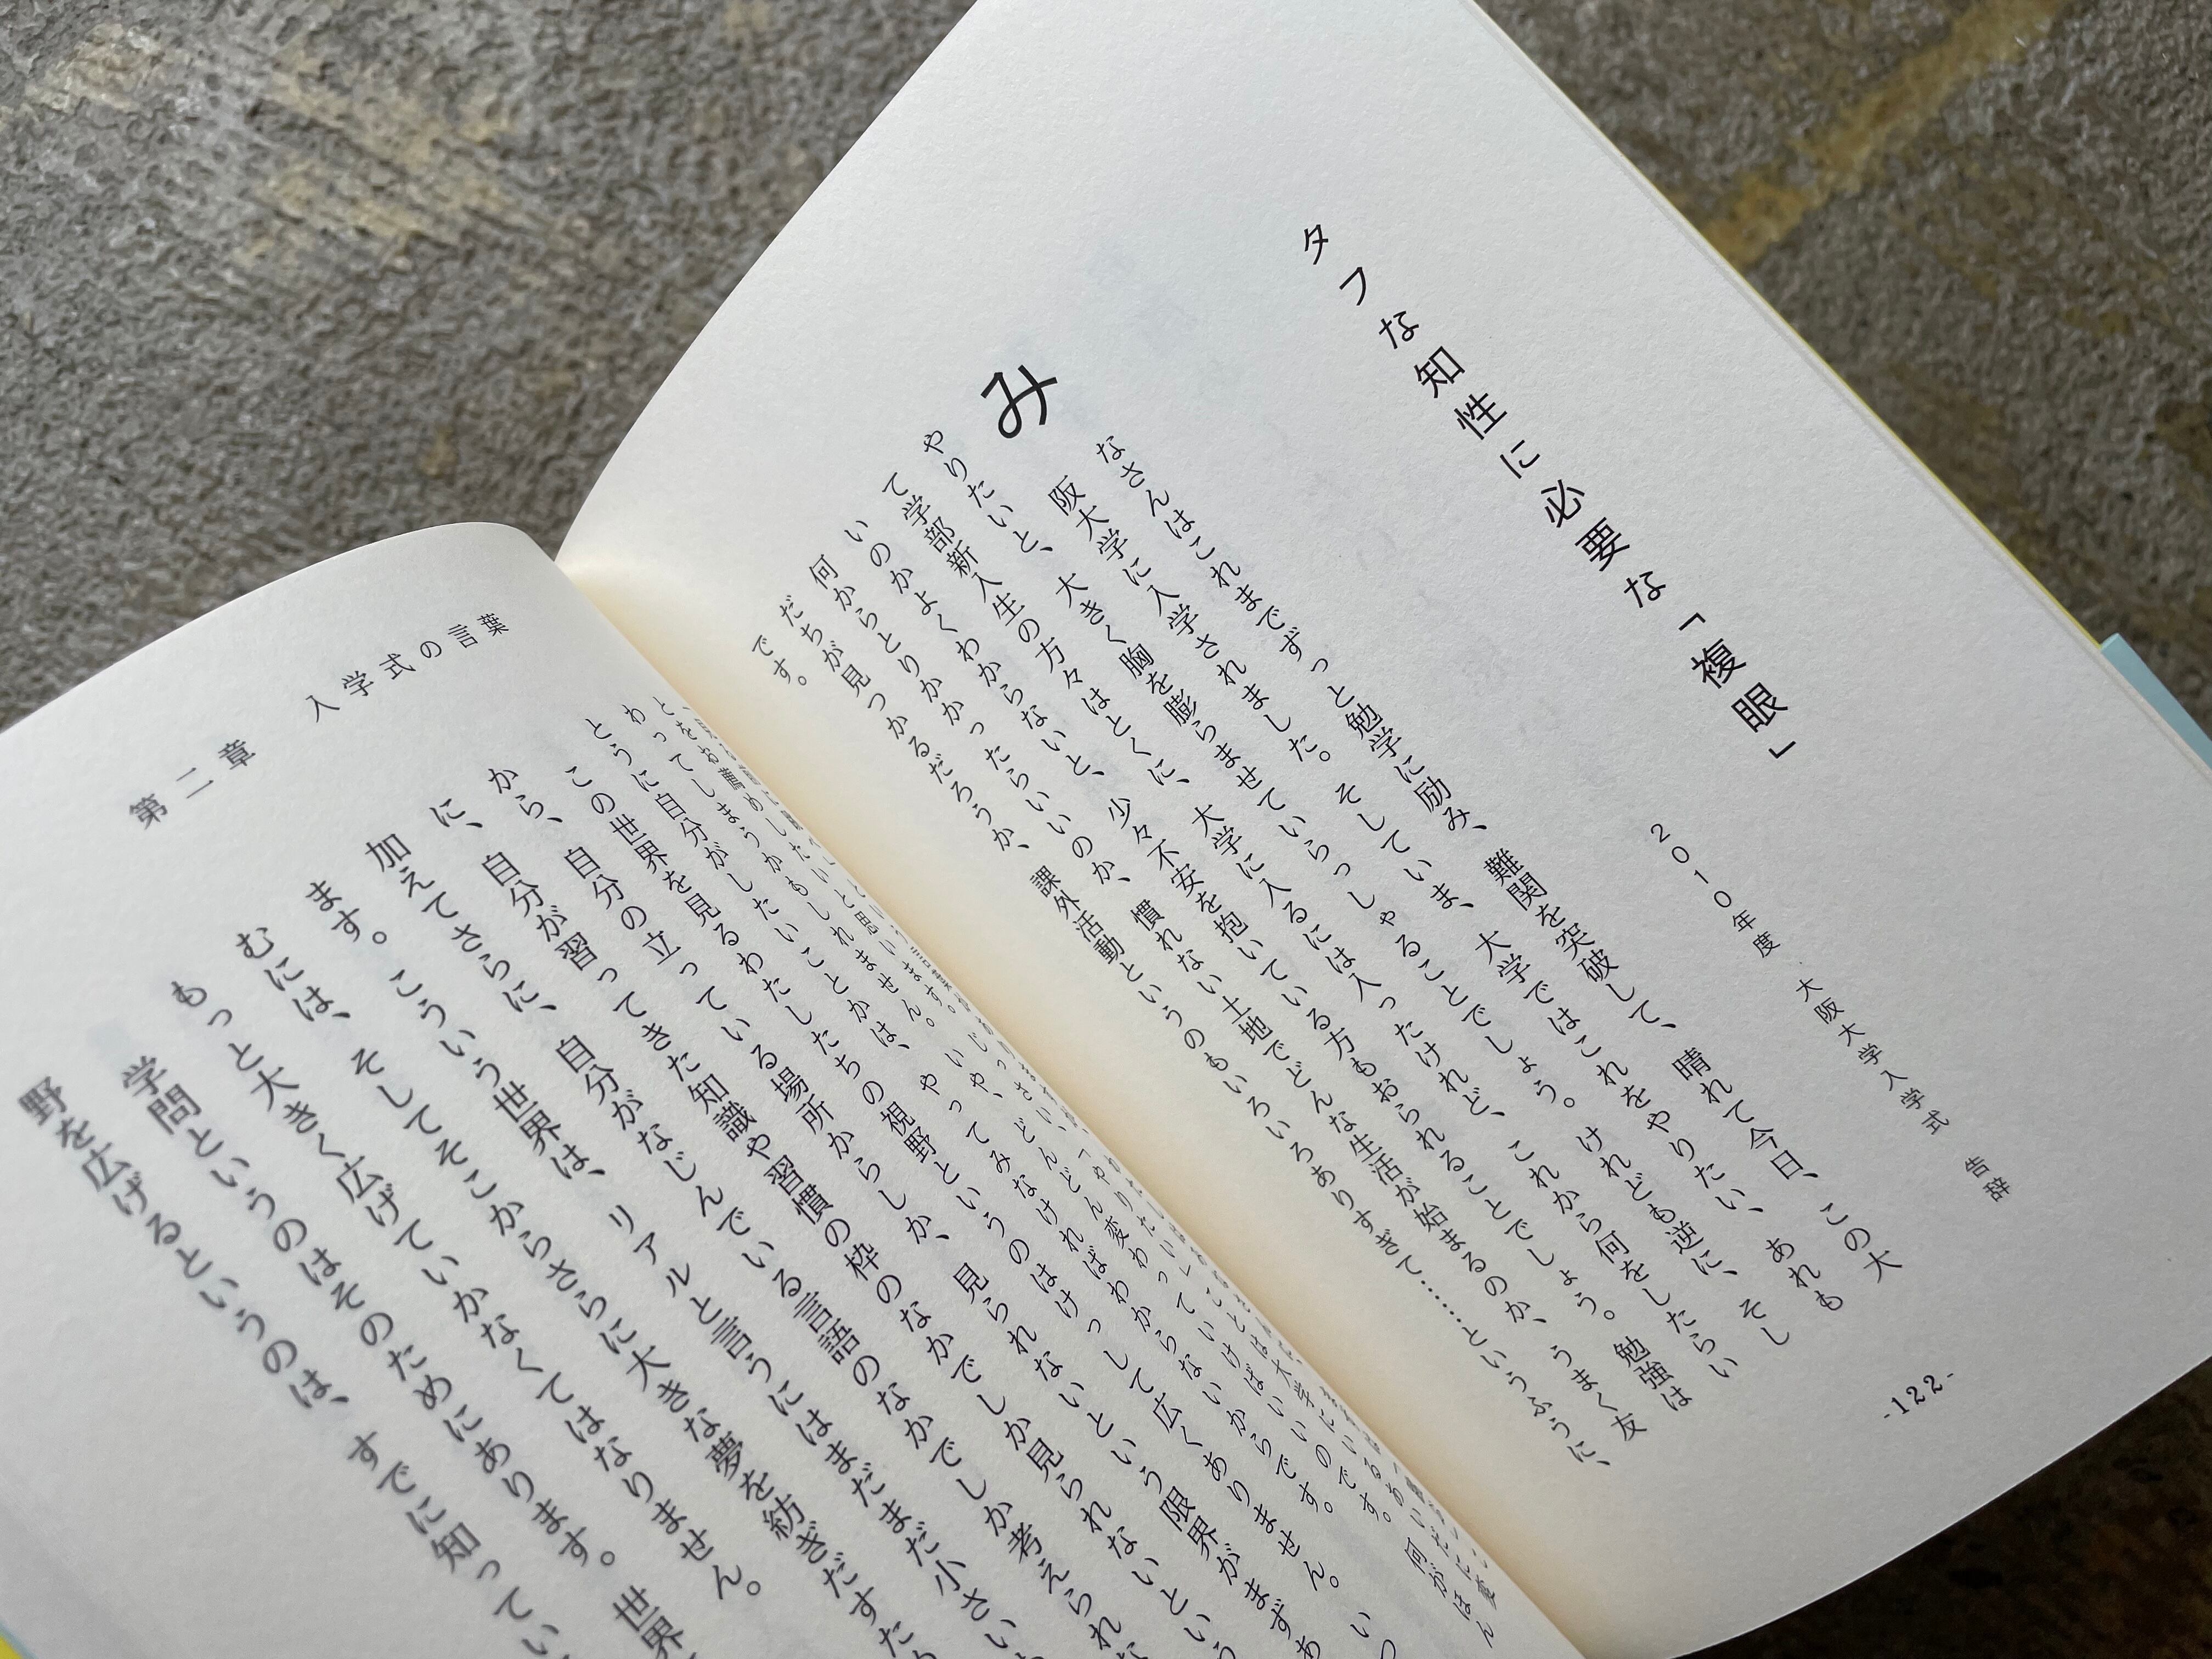 タフな知性に必要な「複眼」
2010年度 大阪大学入学式 告辞
みなさんはこれまでずっと勉学に励み、難関を突破して、晴れて今日、この大
阪大学に入学されました。そしていま、大学ではこれをやりたい、あれも
やりたいと、大きく胸を膨らませていらっしゃることでしょう。けれども逆に、そし
て学部新入生の方々はとくに、大学に入るには入ったけれど、これから何をしたらい
いのかよくわからないと、少々不安を抱いている方もおられることでしょう。勉強は
何からとりかかったらいいのか、慣れない土地でどんな生活が始まるのか、うまく友
だちが見つかるだろうか、課外活動というのもいろいろありすぎて……というふうに、
です。
-122-
わってしまうかもしれません。いや、どんどん変わっていけばいいのです。何がほん
とうに自分がしたいことかは、やってみなければわからないからです。
この世界を見るわたしたちの視野というのはけっして広くありません。いつ
から、自分の立っている場所からしか、見られないという限界がまずあ
に、自分が習ってきた知識や習慣の枠のなかでしか見られないという
加えてさらに、自分がなじんでいる言語のなかでしか考えられな
ます。こういう世界は、リアルと言うにはまだまだ小さい
むには、そしてそこからさらに大きな夢を紡ぎだすた
もっと大きく広げていかなくてはなりません。
学問というのはそのためにあります。世界
野を広げるというのは、すでに知ってい
第二章 入学式の言葉